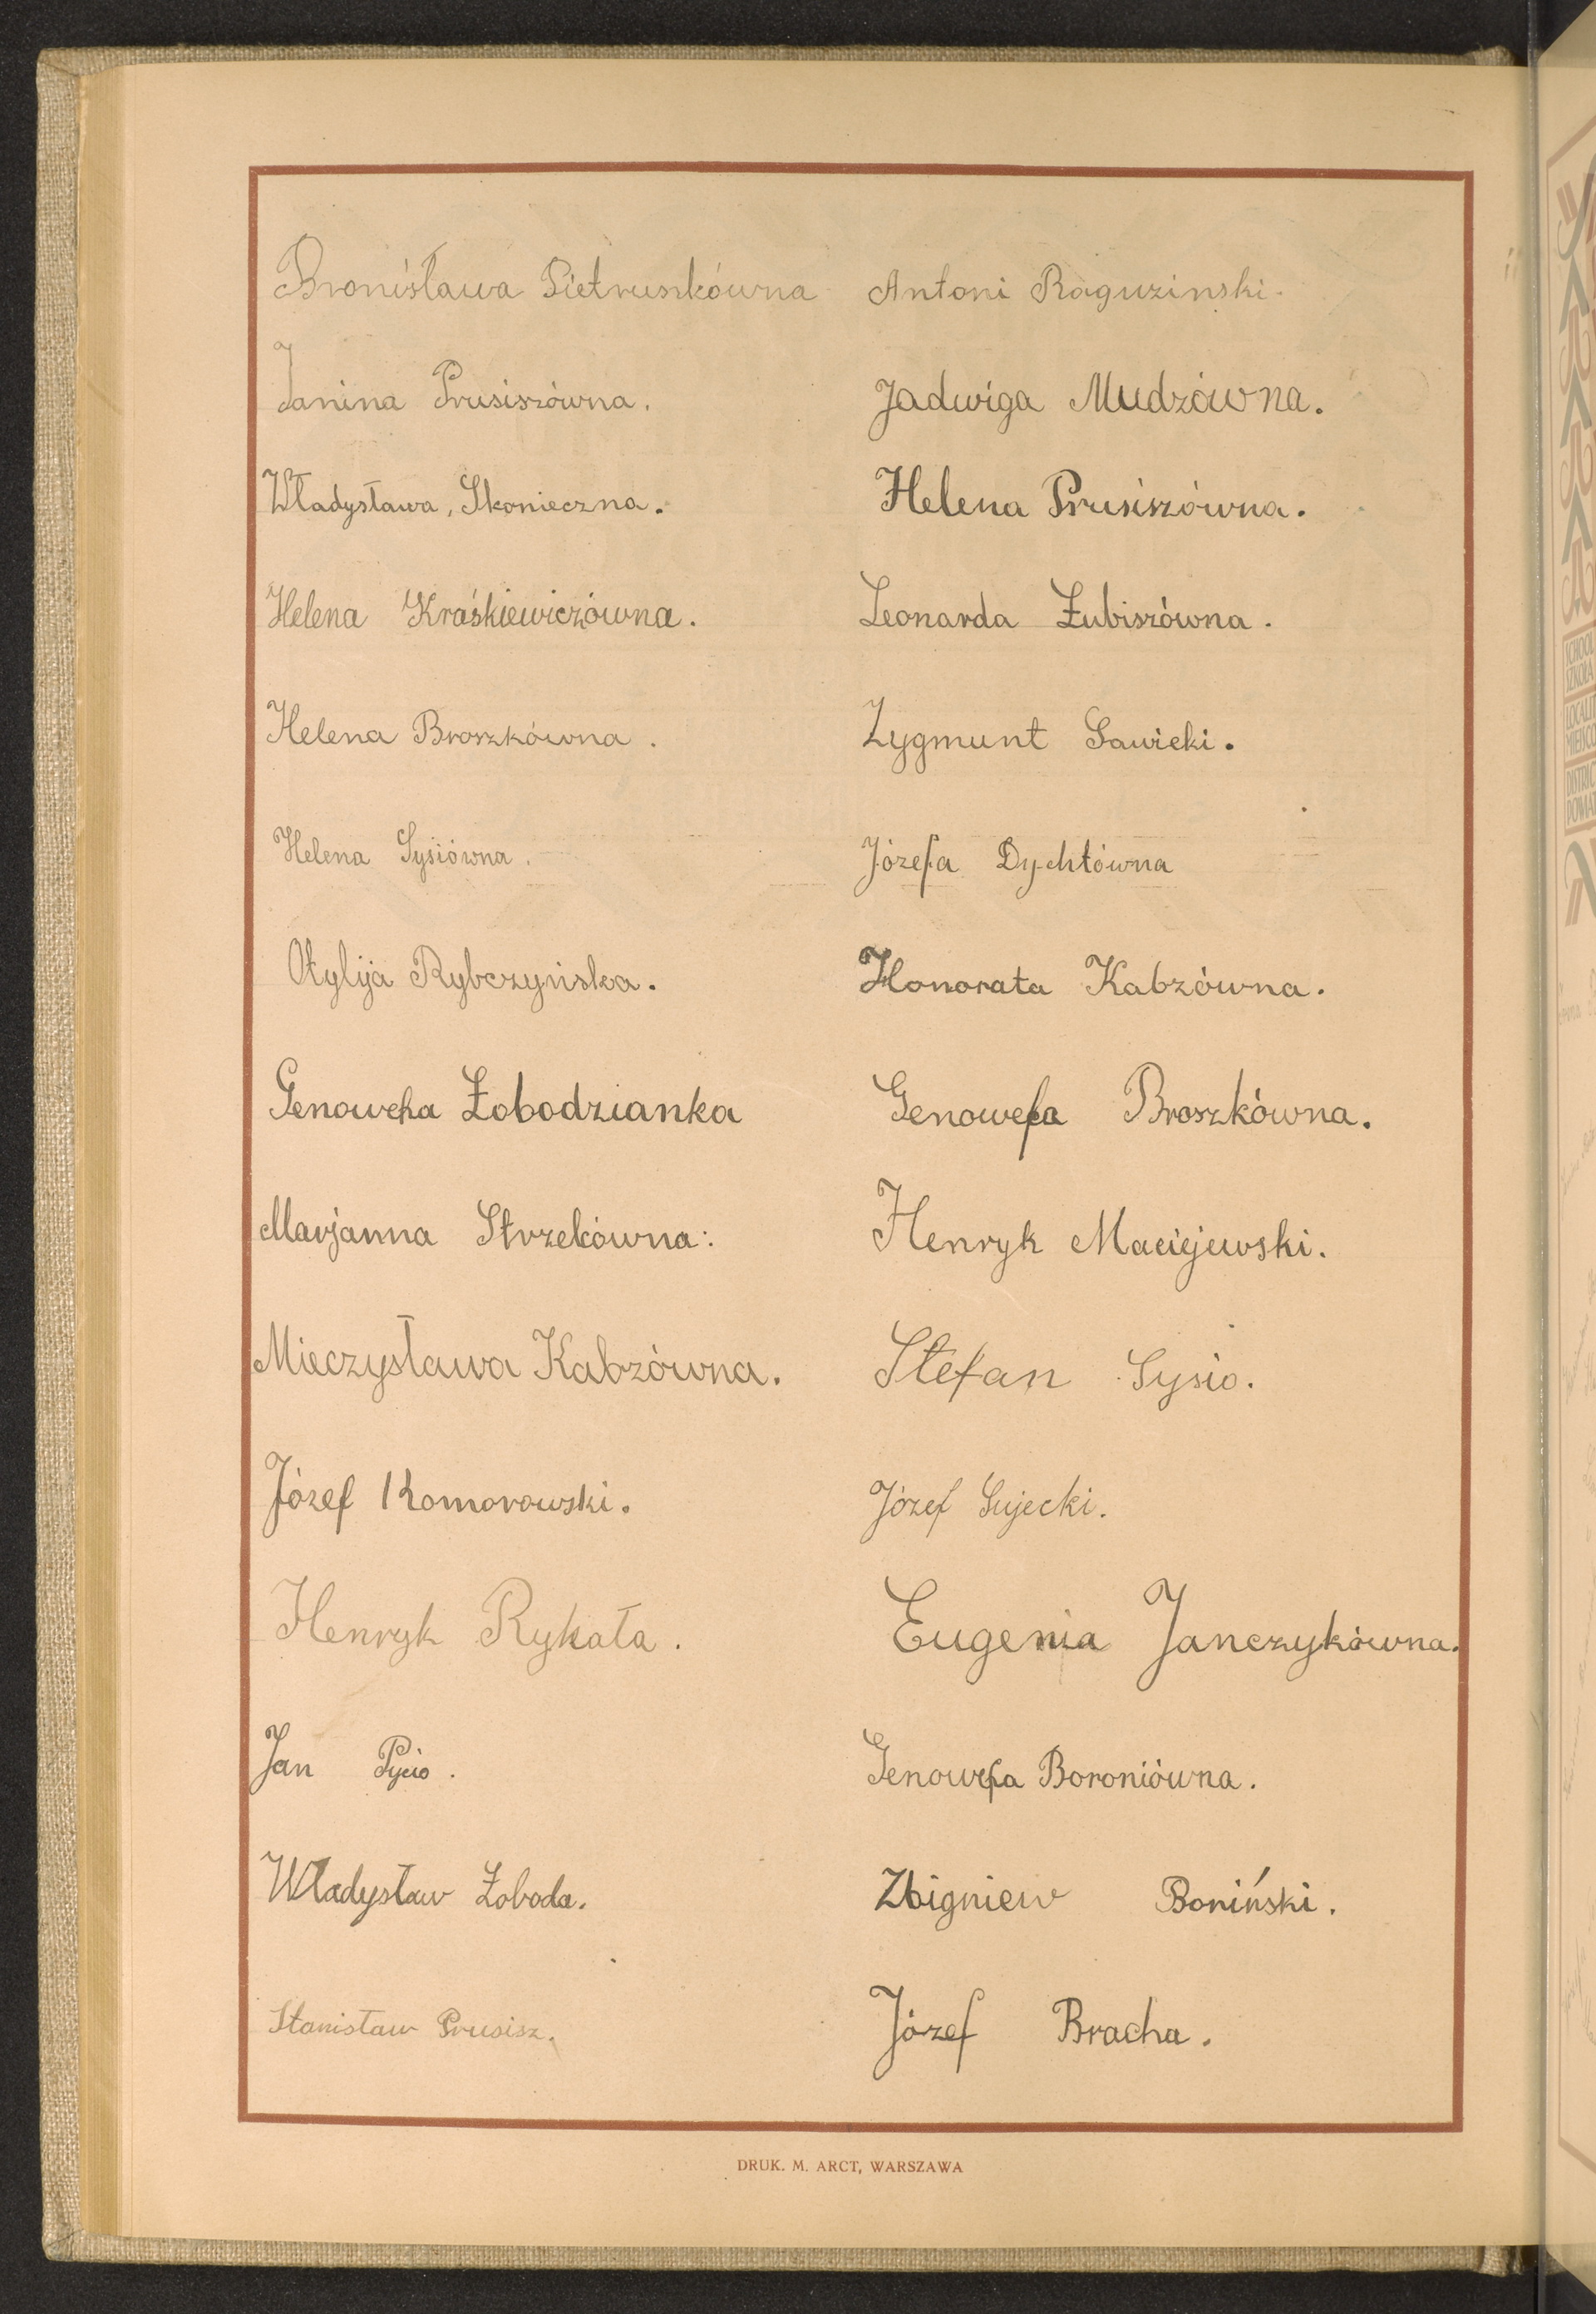 Bronisława Pietruszkówna
Janina Prusiszówna.
Władysława, Skonieczna.
Helena Kraśkiewiczówna.
Helena Broszkówna.
Helena Sysiówna.
Otylija Rybczyńska.
Genowefa Łobodzianka
Marjanna Strzelcówna.
Mieczysława Kabzówna.
Józef Komorowski.
Henryk Rykała.
Jan Pycio.
Władysław Łoboda.
Stanisław Prusisz.
Antoni Raguzinski.
Jadwiga Mudzówna.
Helena Prusiszówna.
Leonarda Łubiszówna.
Zygmunt Sawicki.
Józefa Dychtówna
Honorata Kabzówna.
Genowefa Broszkówna.
Henryk Maciejewski.
Stefan Sysio.
Józef Sujecki.
Eugenia Janczykówna.
Genowefa Boroniówna.
Zbigniew Boniński.
Józef Bracha.
DRUK. M. ARCT, WARSZAWA